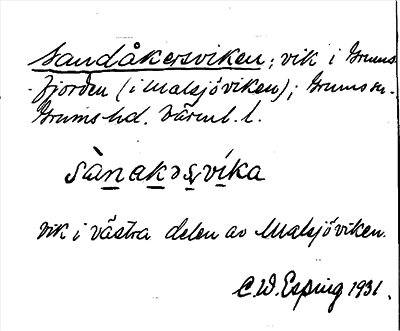 Sandåkersviken; vik i Grums-
fjorden (i Malsjöviken); Grums sn.
Grums hd. Värml. l.
sànakəʂvíka
Vik i västra delen av Malsjöviken.
C.W. Esping 1931.